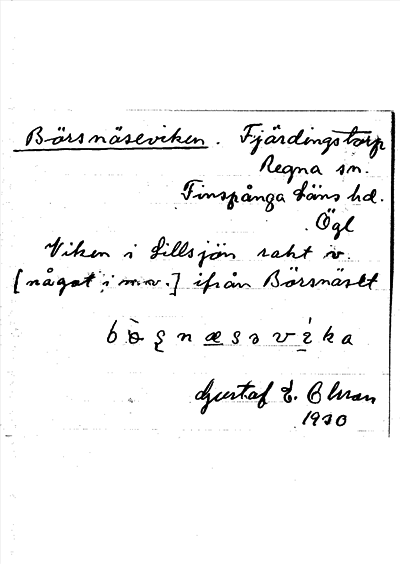 Börsnäseviken. Fjärdingstorp
Regna sn.
Finspånga läns hd.
Ögl
Viken i Lillsjön rakt v.
[något i n.v.] ifrån Börsnäset
Gustaf E.
1930